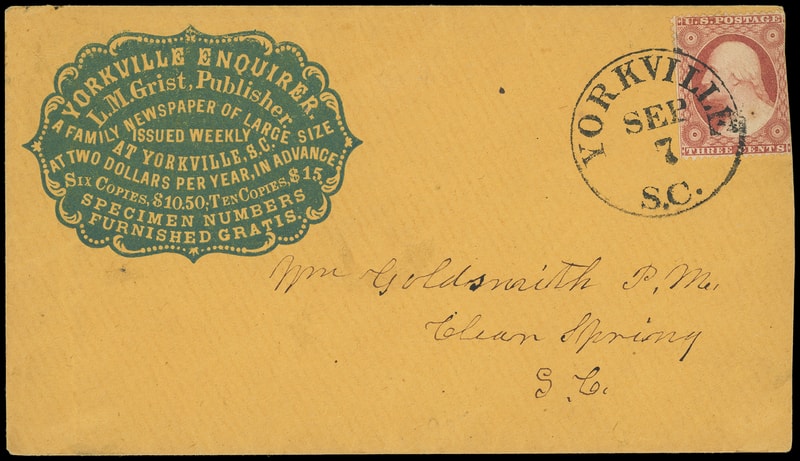 YORKVILLE ENQUIRER.
L.M. Grist, Publisher.
A FAMILY NEWSPAPER OF LARGE SIZE
ISSUED WEEKLY
AT YORKVILLE, S.C.
AT TWO DOLLARS PER YEAR, IN ADVANCE
SIX COPIES, $10.50; TEN COPIES, $15
SPECIMEN NUMBERS
FURNISHED GRATIS.
U.S. POSTAGE
THREE CENTS
YORKVILLE
SEP
7
S.C.
Wm Goldsmith P.M.
Clear Spring
S.C.